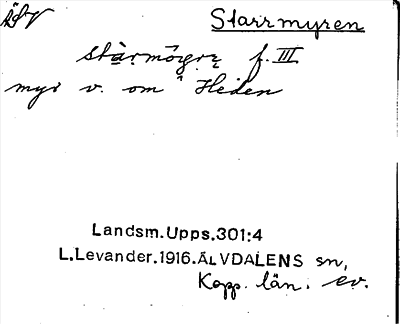 Starrmyren
stàrmögrę f. III
myr v. om Heden
Landsm. Upps. 301:4
L. Levander. 1916. ÄLVDALENS sn,
Kopp. län. ev.